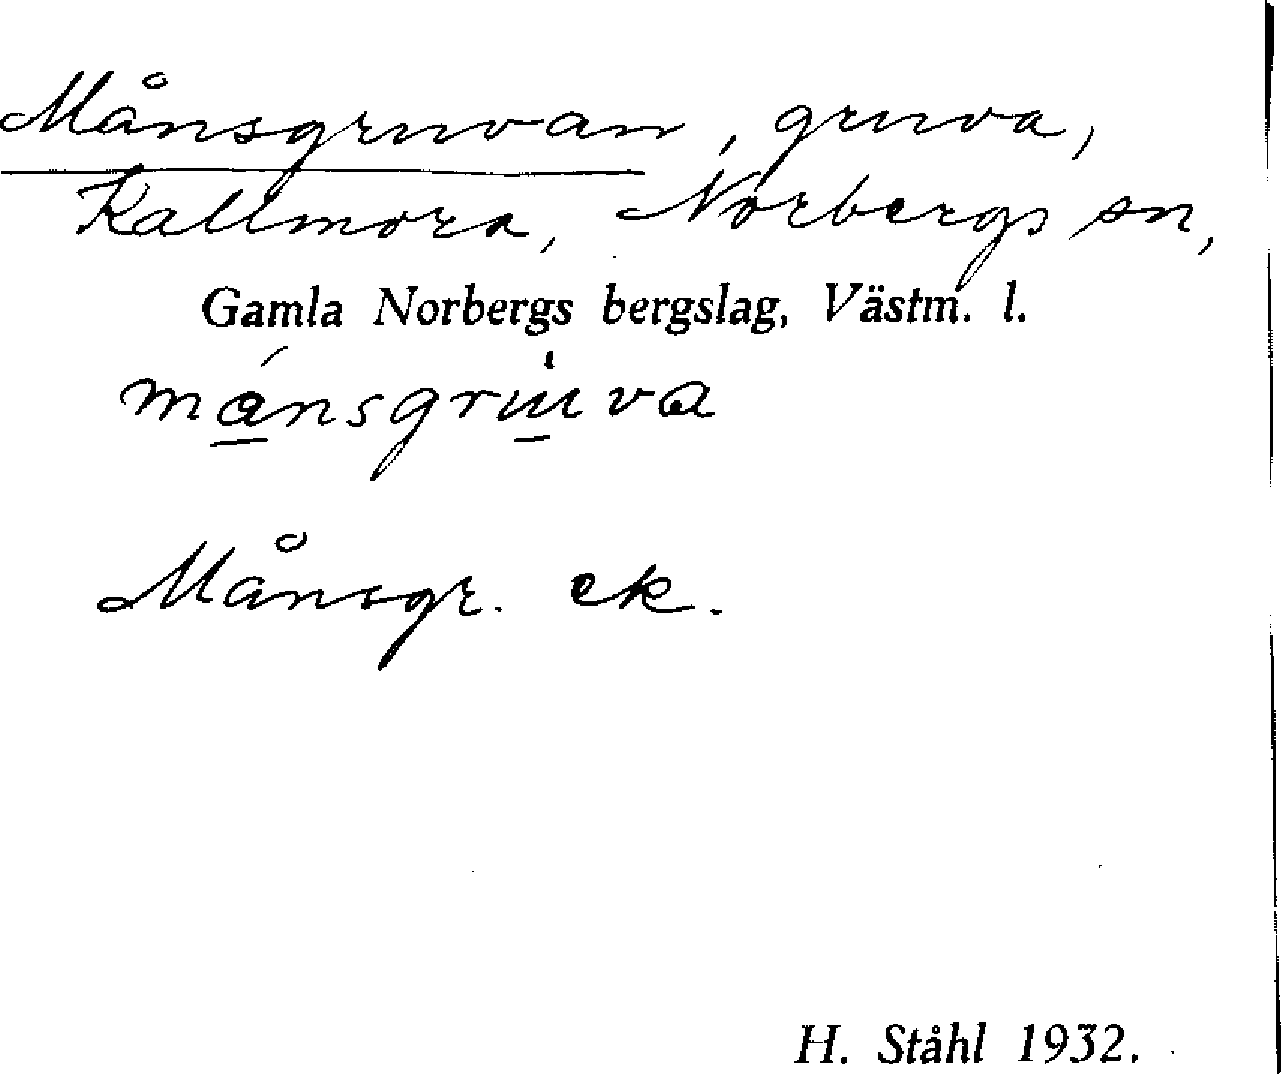 Månsgruvan, gruva,
Kallmora, Norbergs sn,
Gamla Norbergs bergslag, Västm. l.
månsgruva
Månsgr. ek.
H. Ståhl 1932.